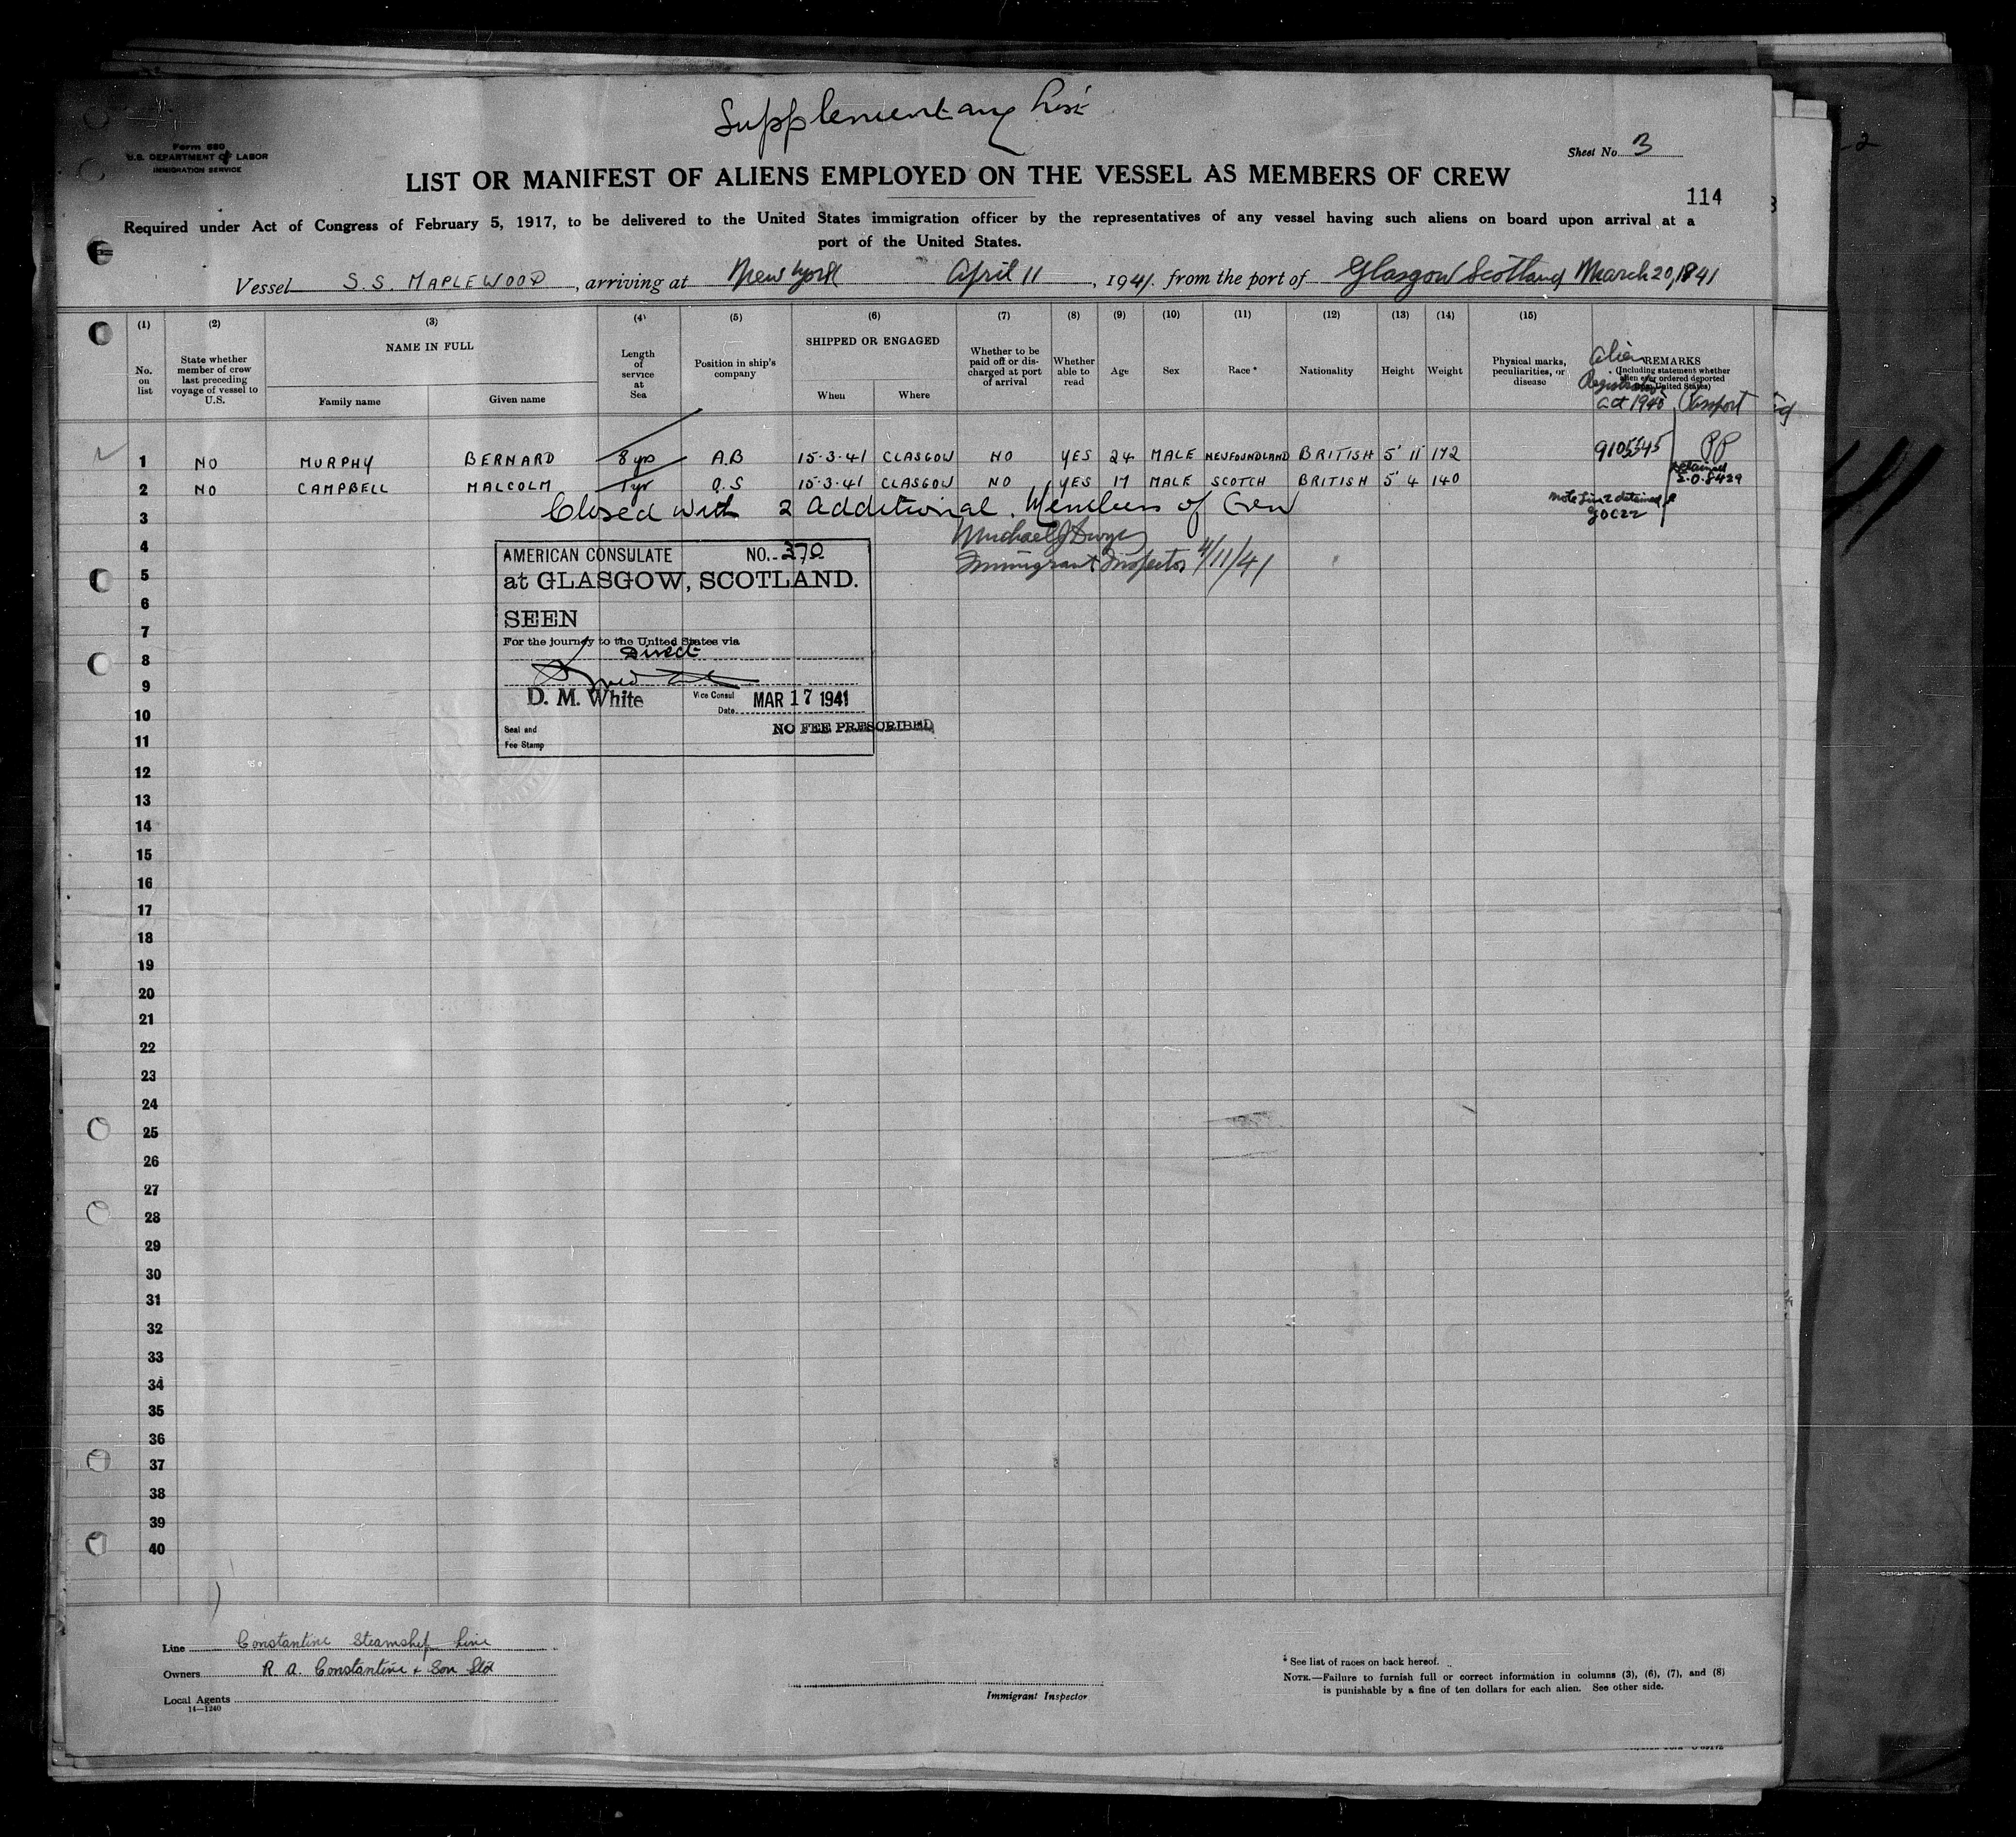 Supplementary List
Form 680
U.S. DEPARTMENT OF LABOR
IMMIGRATION SERVICE
Sheet No. 3
LIST OR MANIFEST OF ALIENS EMPLOYED ON THE VESSEL AS MEMBERS OF CREW
114
Required under Act of Congress of February 5, 1917, to be delivered to the United States immigration officer by the representatives of any vessel having such aliens on board upon arrival at a
port of the United States.
Vessel S.S. MAPLEWOOD, arriving at New York April 11, 1941. from the port of Glasgow Scotland March 20, 1841
(1) (2) (3) (4) (5) (6) (7) (8) (9) (10) (11) (12) (13) (14) (15)
No. on list
State whether member of crew last preceding voyage of vessel to U.S.
NAME IN FULL
Family name
Given name
Length of service at Sea
Position in ship's company
SHIPPED OR ENGAGED
When
Where
Whether to be paid off or discharged at port of arrival
Whether able to read
Age
Sex
Race*
Nationality
Height
Weight
Physical marks, peculiarities, or disease
REMARKS
(Including statement whether alien ever ordered deported from United States)
Alien Registration Act 1940
Passport
1 NO MURPHY BERNARD 8 yrs A.B 15.3.41 GLASGOW NO YES 24 MALE NEWFOUNDLAND BRITISH 5' 11 172 9105545 PP
2 NO CAMPBELL MALCOLM 1 yr O.S 15.3.41 GLASGOW NO YES 17 MALE SCOTCH BRITISH 5' 4 140 detained
Closed with 2 additional Members of Crew
note Line 2 detained
3
Michael J Dwyer
4
Immigrant Inspector 4/11/41
5
6
7
8
9
10
11
12
13
14
15
16
17
18
19
20
21
22
23
24
25
26
27
28
29
30
31
32
33
34
35
36
37
38
39
40
AMERICAN CONSULATE NO. 370
at GLASGOW, SCOTLAND.
SEEN
For the journey to the United States via
Direct
D. M. White Vice Consul
Date MAR 17 1941
NO FEE PRESCRIBED
Seal and
Fee Stamp
Line Constantine Steamship Line
Owners R. A. Constantine & Son Ltd
Local Agents
14—1240
Immigrant Inspector
* See list of races on back hereof.
NOTE.—Failure to furnish full or correct information in columns (3), (6), (7), and (8)
is punishable by a fine of ten dollars for each alien. See other side.